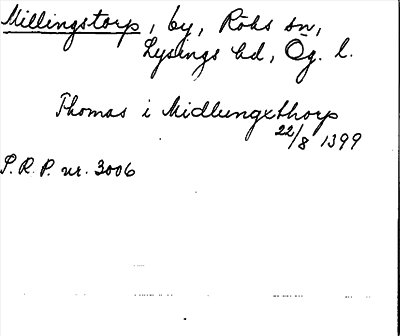 Millingstorp, by, Röks sn,
Lysings hd, Ög. l.
Thomas i Midlungxthorp
22/8 1399
S.R.P. nr. 3006